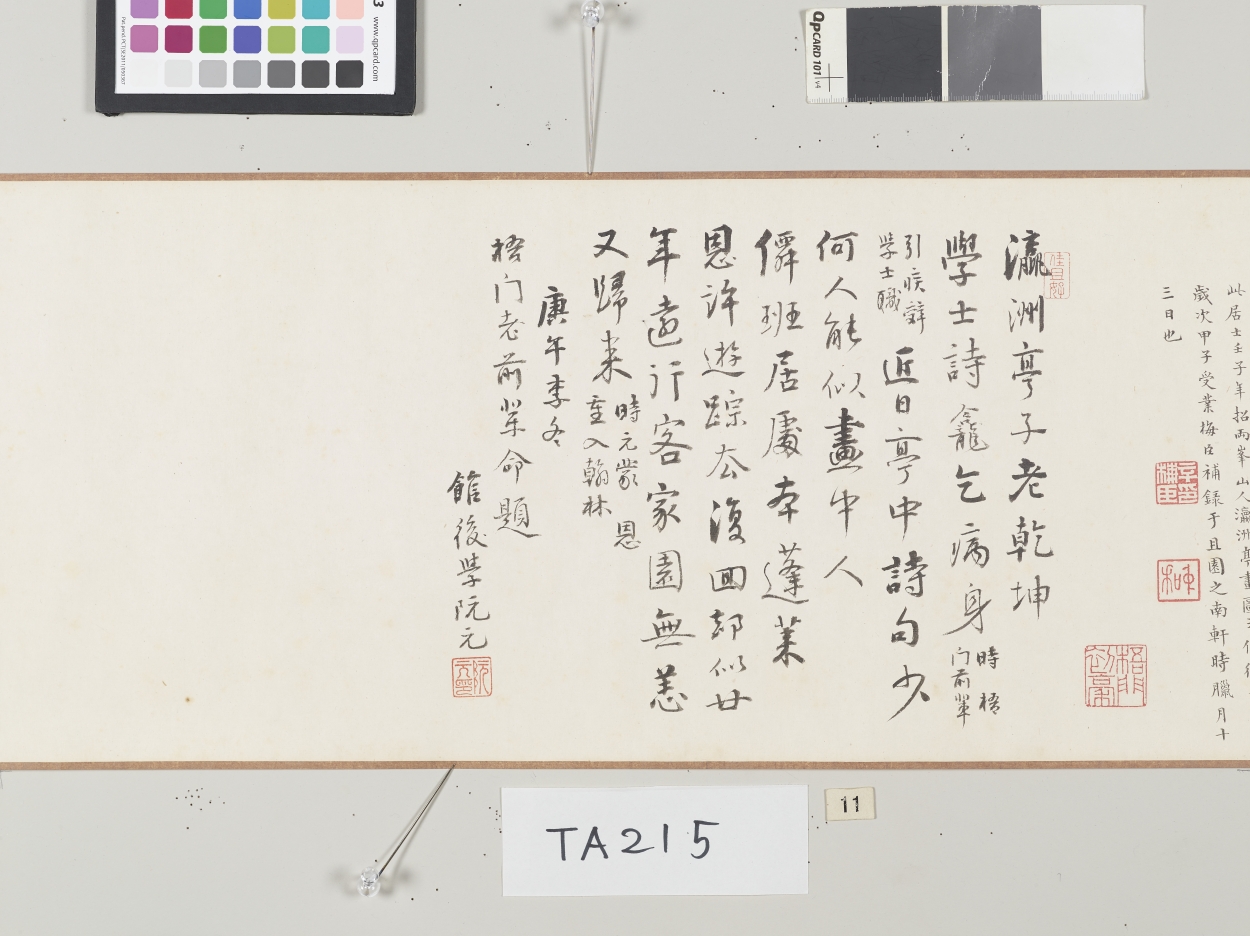 此居士壬子年招両峯山人瀛洲亭畫
歲次甲子受業梅臣補録于且園之南軒時臘月十
三日也
瀛洲亭子老乾坤
學士詩龕乞病身時梧
门前輩
引疾辭
學士職
近日亭中詩句少
何人能似畫中人
僊班居處本蓬萊
恩許遊踪去復回却似廿
年遠行客家園無恙
又歸来時元蒙 恩
重入翰林
庚午季冬
梧门老前輩命題
館後學阮元
TA215
11
QPCARD 101 v4
www.qpcard.com